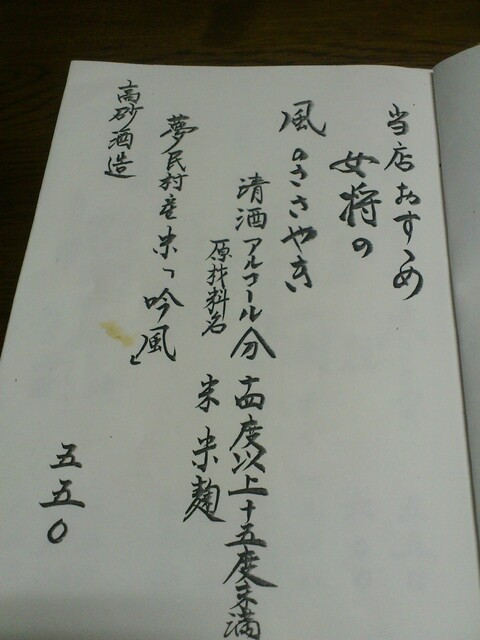 当店おすゝめ
女将の
風のささやき
清酒 アルコール分 十四度以上十五度未満
原材料名 米 米麹
夢民村産米「吟風」
高砂酒造
五五〇